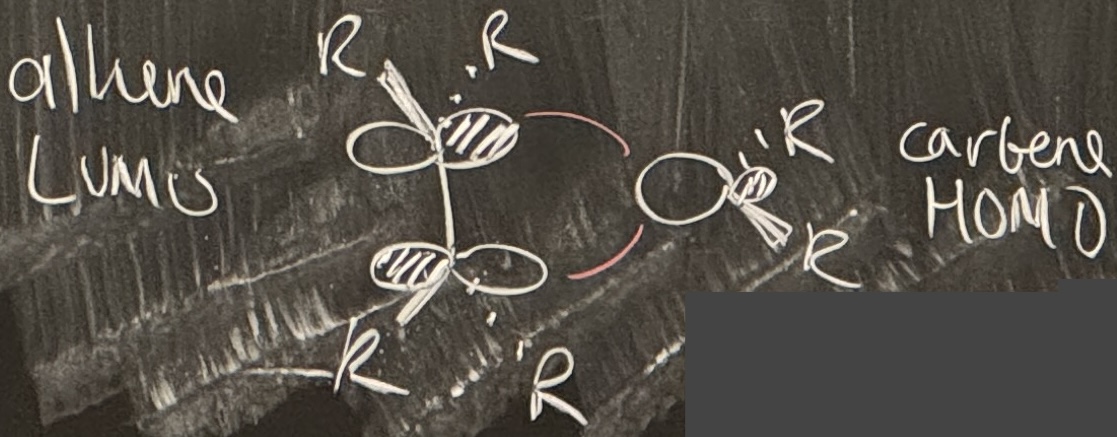 alkene
LUMO
R
R
R
R
R
R
carbene
HOMO